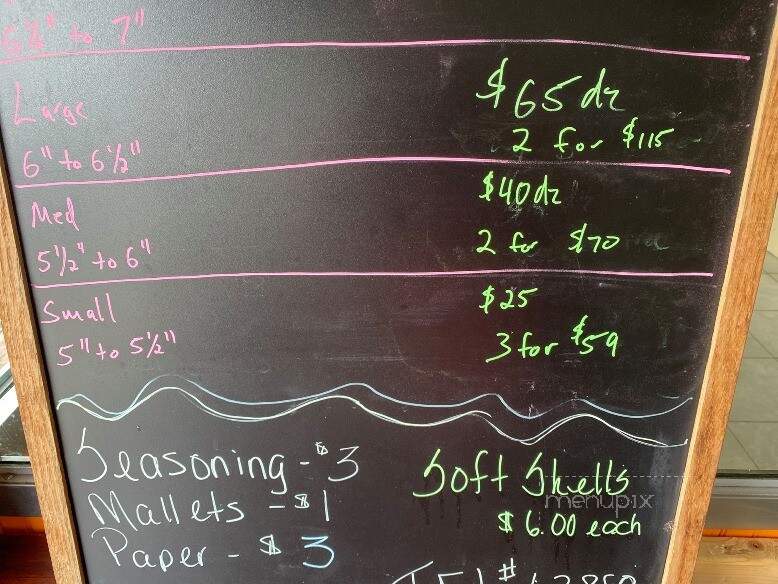 to 7"
Large
$65 dz
6" to 6½"
2 for $115
Med
$40 dz
5½" to 6"
2 for $70
Small
$25
5" to 5½"
3 for $59
Seasoning - $3
Mallets - $1
Paper - $3
Soft Shells
menupix
$6.00 each